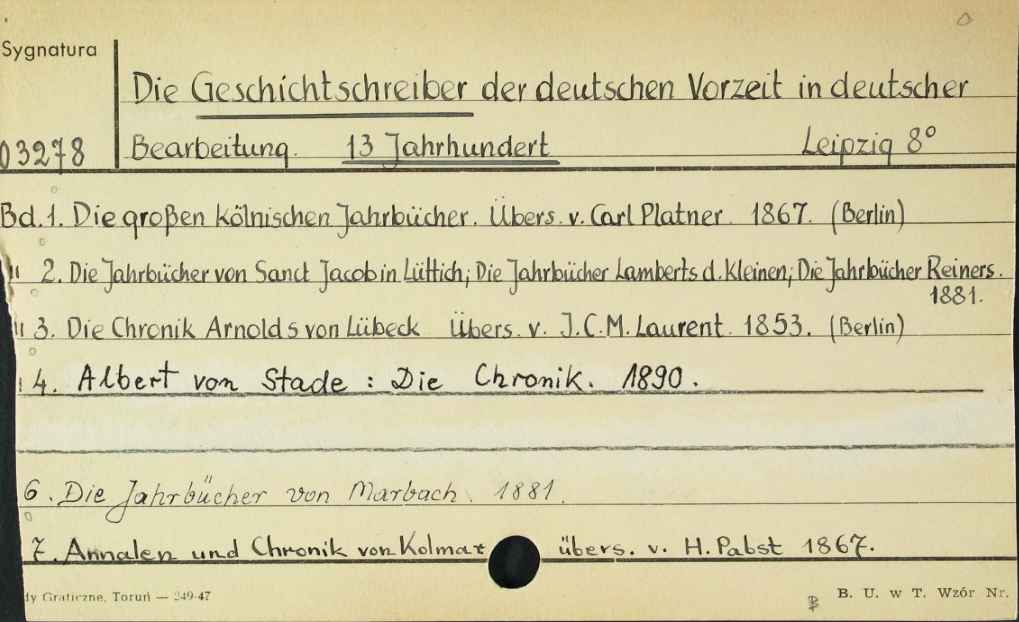 Sygnatura
Die Geschichtschreiber der deutschen Vorzeit in deutscher
03278 Bearbeitung. 13 Jahrhundert Leipzig 8°
Bd. 1. Die großen kölnischen Jahrbücher. Übers. v. Carl Platner. 1867. (Berlin)
" 2. Die Jahrbücher von Sanct Jacob in Lüttich; Die Jahrbücher Lamberts d. Kleinen; Die Jahrbücher Reiners.
1881.
" 3. Die Chronik Arnolds von Lübeck Übers. v. J.C.M. Laurent. 1853. (Berlin)
4. Albert von Stade : Die Chronik. 1890.
6. Die Jahrbücher von Marbach. 1881.
7. Annalen und Chronik von Kolmar übers. v. H. Pabst 1867.
dy Graficzne, Toruń — 349-47 B. U. w T. Wzór Nr.